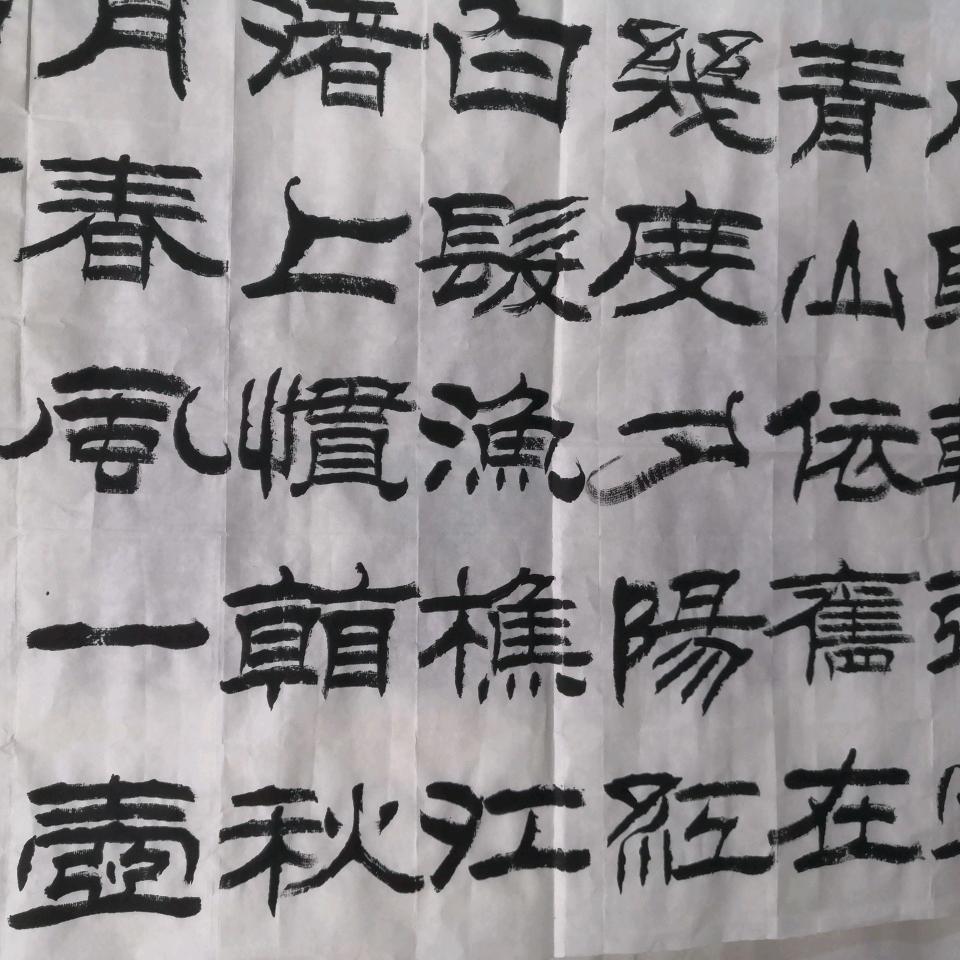 青山依舊在
幾度夕陽紅
白髮漁樵江
渚上慣看秋
月春風一壺